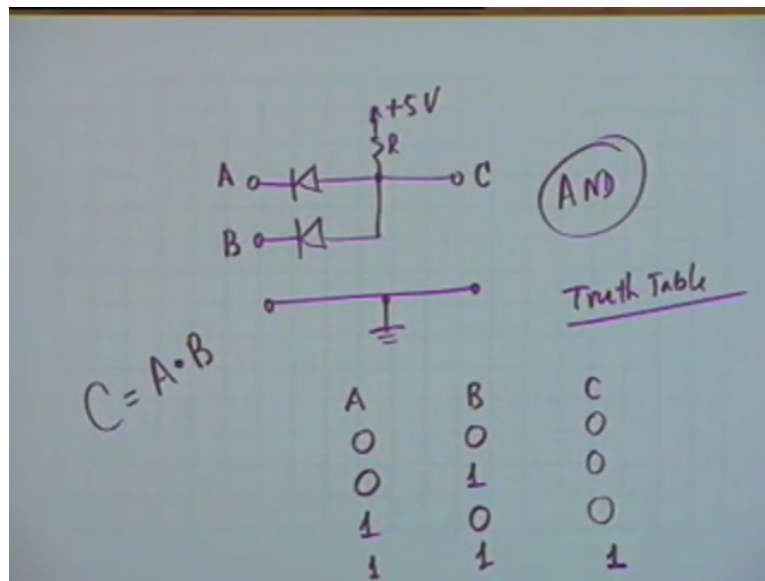 +5V
R
A C
B
AND
Truth Table
C = A • B
A B C
0 0 0
0 1 0
1 0 0
1 1 1